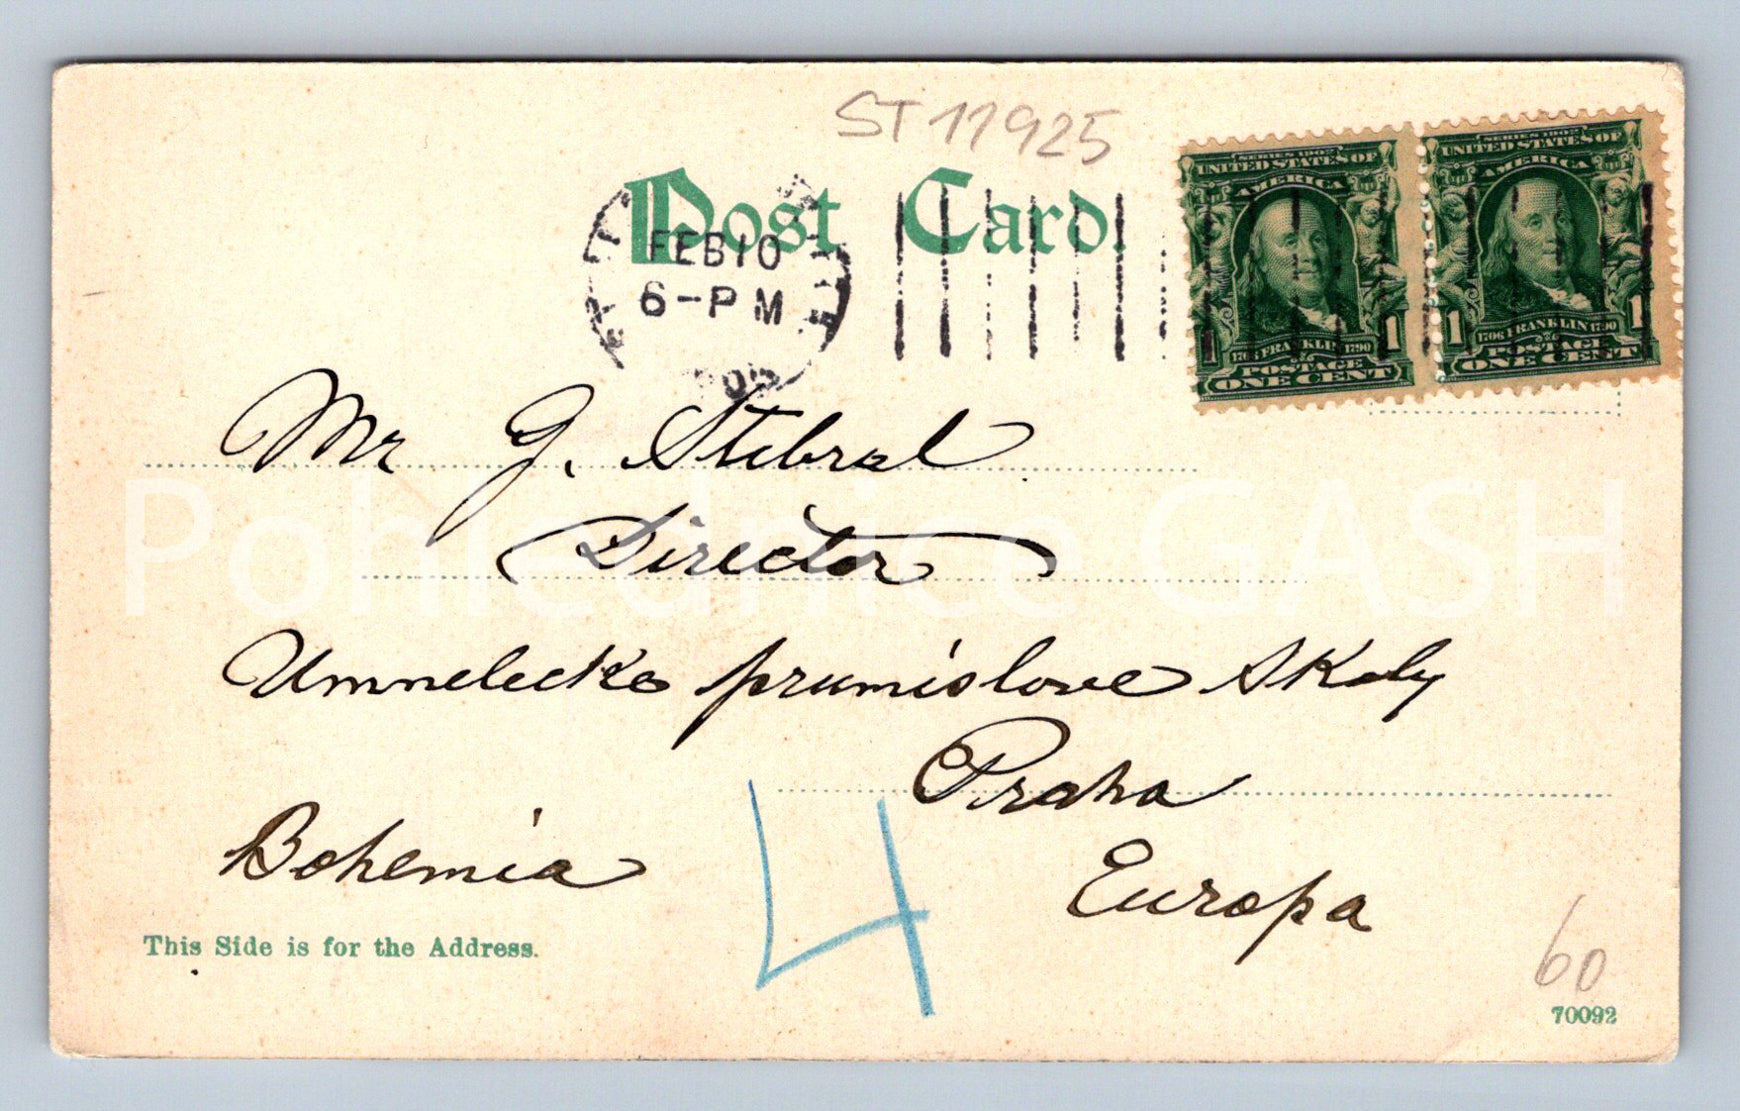 ST 11925
Post Card.
FEB 10
6-PM
SERIES 1902
UNITED STATES OF
AMERICA
1 1
1706 FRANKLIN 1790
POSTAGE
ONE CENT
SERIES 1902
UNITED STATES OF
AMERICA
1 1
1706 FRANKLIN 1790
POSTAGE
ONE CENT
Mr J. Stibral
Director
Pohlednice GASH
Ummelecke prumislove skoly
Praha
Bohemia
Europa
4
This Side is for the Address.
60
70092